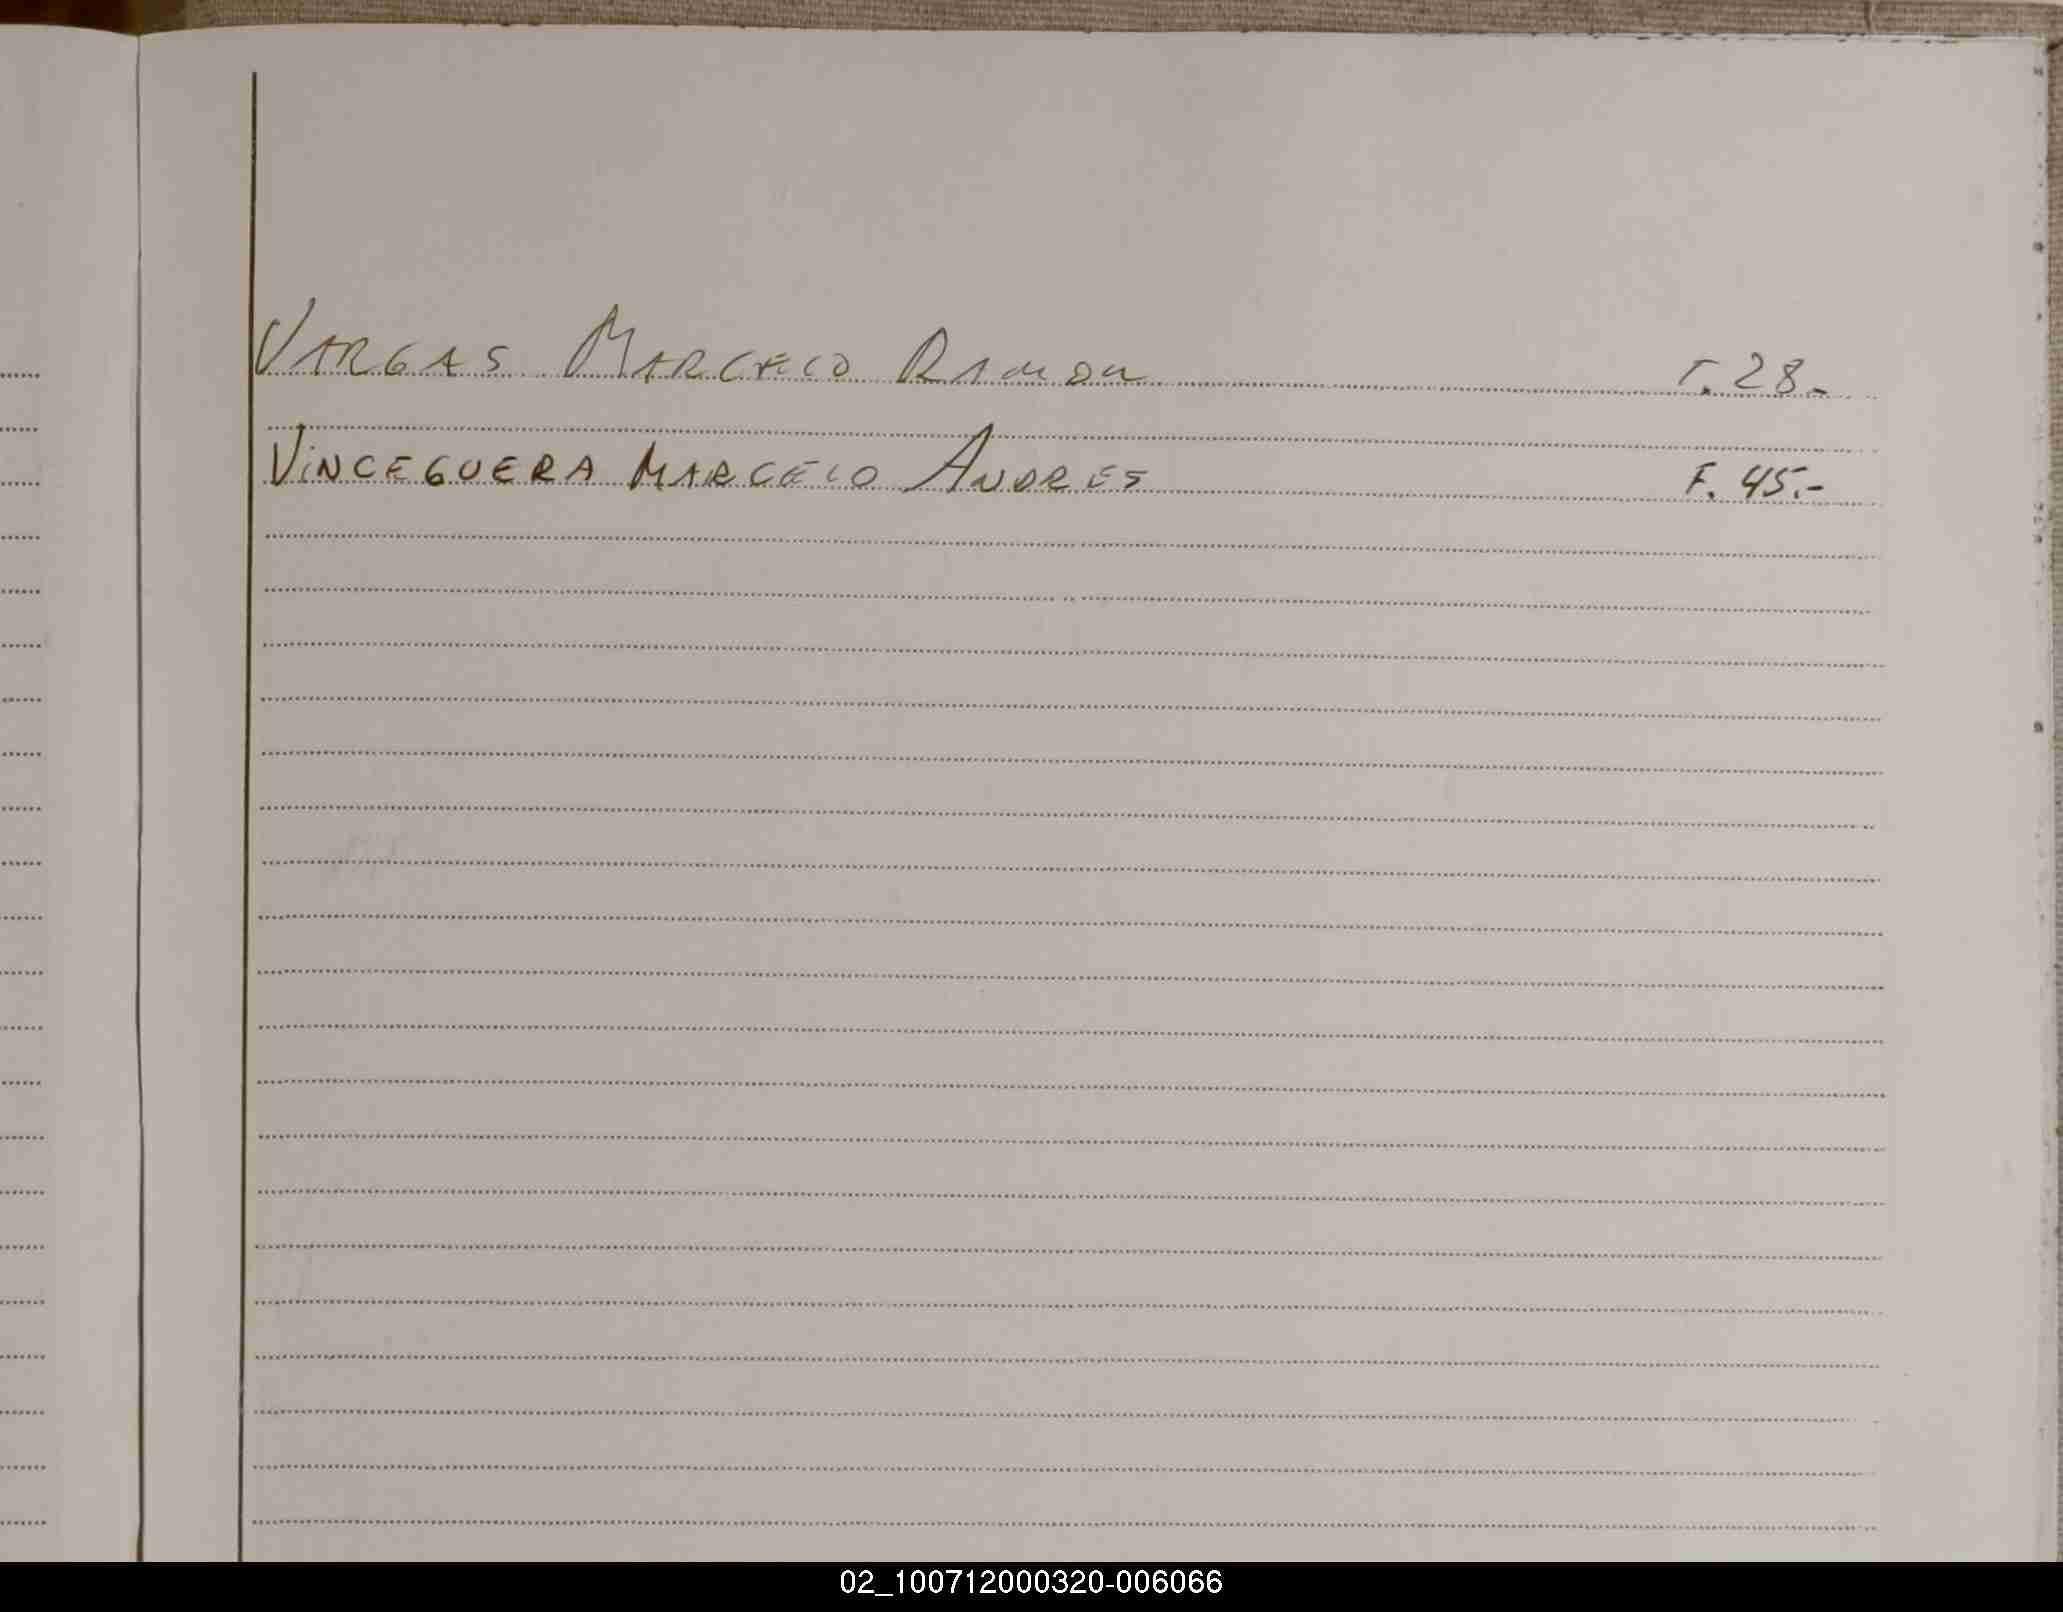 VARGAS MARCELO RAMON F. 28.-
VINCEGUERA MARCELO ANDRES F. 45.-
02_100712000320-006066